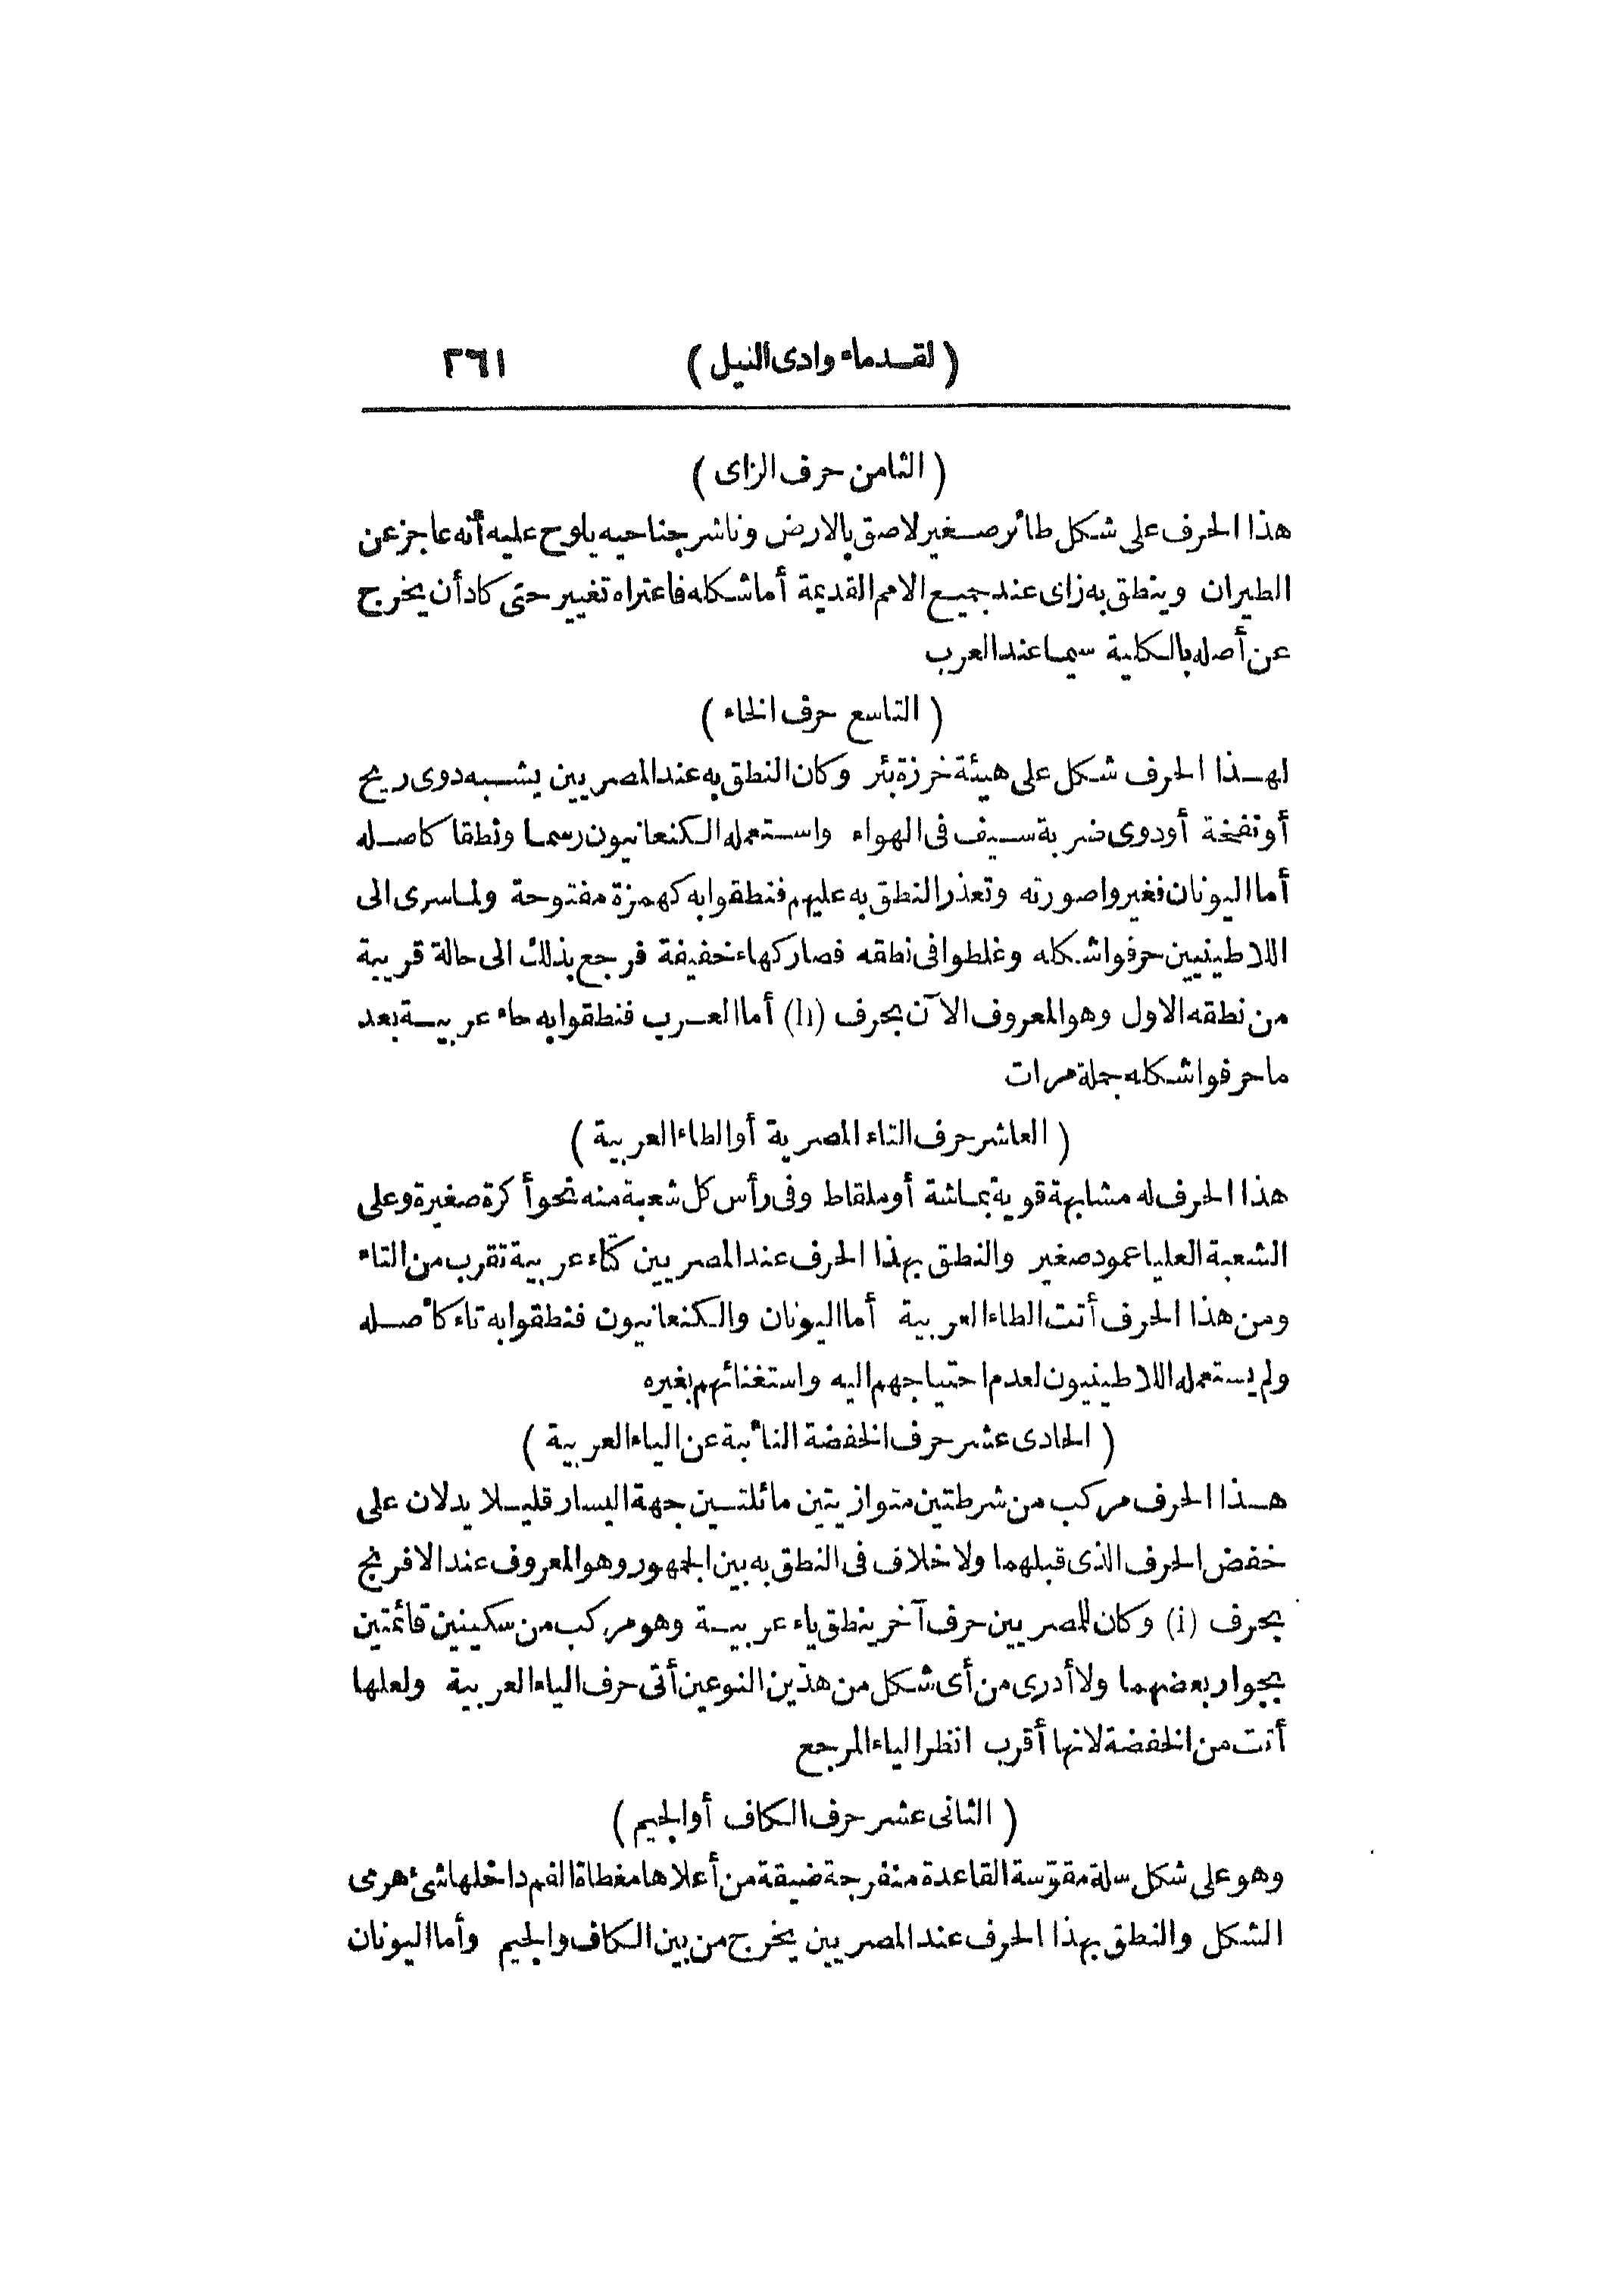 (لقدماء وادى النيل) ٢٦١
(الثامن حرف الزاى)
هذا الحرف على شكل طائر صغير لاصق بالارض وناشر جناحيه يلوح عليه أنه عاجز عن
الطيران وينطق به زاى عند جميع الامم القديمة أما شكله فاعتراه تغيير حتى كاد أن يخرج
عن أصله بالكلية سيما عند العرب
(التاسع حرف الخاء)
لهذا الحرف شكل على هيئة خرزة بئر وكان النطق به عند المصريين يشبه دوى ريح
أو نفخة أو دوى ضربة سيف فى الهواء واستعمله الكنعانيون رسما ونطقا كاصله
أما اليونان فغيروا صورته وتعذر النطق به عليهم فنطقوا به كهمزة مفتوحة ولما سرى الى
اللاطينيين حرفوا شكله وغلطوا فى نطقه فصار كهاء خفيفة فرجع بذلك الى حالة قريبة
من نطقه الاول وهو المعروف الآن بحرف (h) أما العرب فنطقوا به حاء عربية بعد
ما حرفوا شكله جملة مرات
(العاشر حرف التاء المصرية أو الطاء العربية)
هذا الحرف له مشابهة قوية بماشة أو ملقاط وفى رأس كل شعبة منه نحو أكرة صغيرة وعلى
الشعبة العليا عمود صغير والنطق بهذا الحرف عند المصريين كتاء عربية تقرب من الثاء
ومن هذا الحرف أتت الطاء العربية أما اليونان والكنعانيون فنطقوا به تاء كأصله
ولم يستعمله اللاطينيون لعدم احتياجهم اليه واستغنائهم بغيره
(الحادى عشر حرف الخفضة النائبة عن الياء العربية)
هذا الحرف مركب من شرطتين متوازيتين مائلتين جهة اليسار قليلا يدلان على
خفض الحرف الذى قبلهما ولا خلاف فى النطق به بين الجمهور وهو المعروف عند الافرنج
بحرف (i) وكان للمصريين حرف آخر ينطق ياء عربية وهو مركب من سكينين قائمتين
بجوار بعضهما ولا أدرى من أى شكل من هذين النوعين أتى حرف الياء العربية ولعلها
أتت من الخفضة لانها أقرب انظر الياء المرجع
(الثانى عشر حرف الكاف أو الجيم)
وهو على شكل سلة مقوّسة القاعدة منفرجة ضيقة من أعلاها مغطاة الفم داخلها شئ هرمى
الشكل والنطق بهذا الحرف عند المصريين يخرج من بين الكاف والجيم وأما اليونان